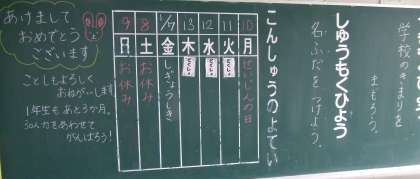 学校のきまりを
まもろう。
しゅうもくひょう
名ふだをつけよう。
こんしゅうのよてい
10 月 せいじんの日
11 火
12 水
13 木
1/7 金 しぎょうしき
8 土 お休み
9 日 お休み
あけまして
おめでとう
ございます
ことしもよろしく
おねがいします
1年生もあと3か月。
30人力をあわせて
がんばろう!